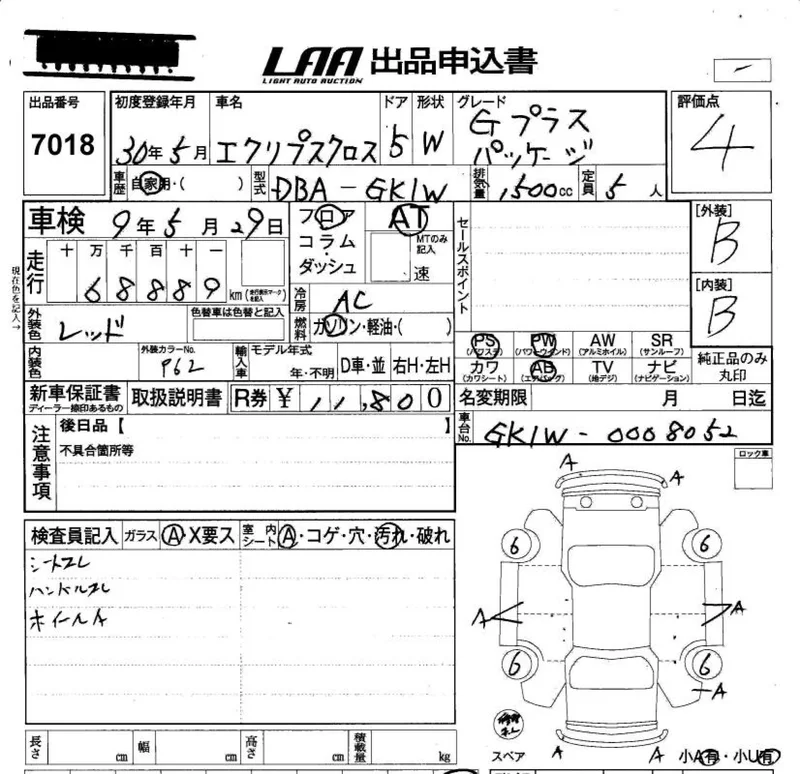 LAA 出品申込書
LIGHT AUTO AUCTION
出品番号 7018
初度登録年月 30年5月
車名 エクリプスクロス
ドア 5
形状 W
グレード Gプラスパッケージ
評価点 4
車歴 自家用・( )
型式 DBA-GK1W
排気量 1,500cc
定員 5人
車検 9年5月29日
フロア・コラム・ダッシュ
AT
MTのみ記入 速
セールスポイント
[外装] B
[内装] B
走行 十万千百十一
68889 km (走行表示マークを記入)
冷房 AC
燃料 ガソリン・軽油・( )
現在色を記入→
外装色 レッド
色替車は色替と記入
内装色
外装カラーNo. P62
輸入車 モデル年式 年・不明 D車・並 右H・左H
PS (パワステ) PW (パワーウインド) AW (アルミホイル) SR (サンルーフ)
カワ (カワシート) AB (エアバッグ) TV (地デジ) ナビ (ナビゲーション)
純正品のみ丸印
新車保証書 ディーラー捺印あるもの
取扱説明書
R券 ¥ 11,800
名変期限 月 日迄
車台No. GK1W-0008052
注意事項
後日品【 】
不具合箇所等
ロック車
検査員記入 ガラス A・X要ス 室内シート A・コゲ・穴・汚れ・破れ
シートスレ
ハンドルスレ
ホイールA
A A
6 6
A A
6 6
A
A A
修復ナシ
スペア
小A有・小U有
長さ cm 幅 cm 高さ cm 積載量 kg